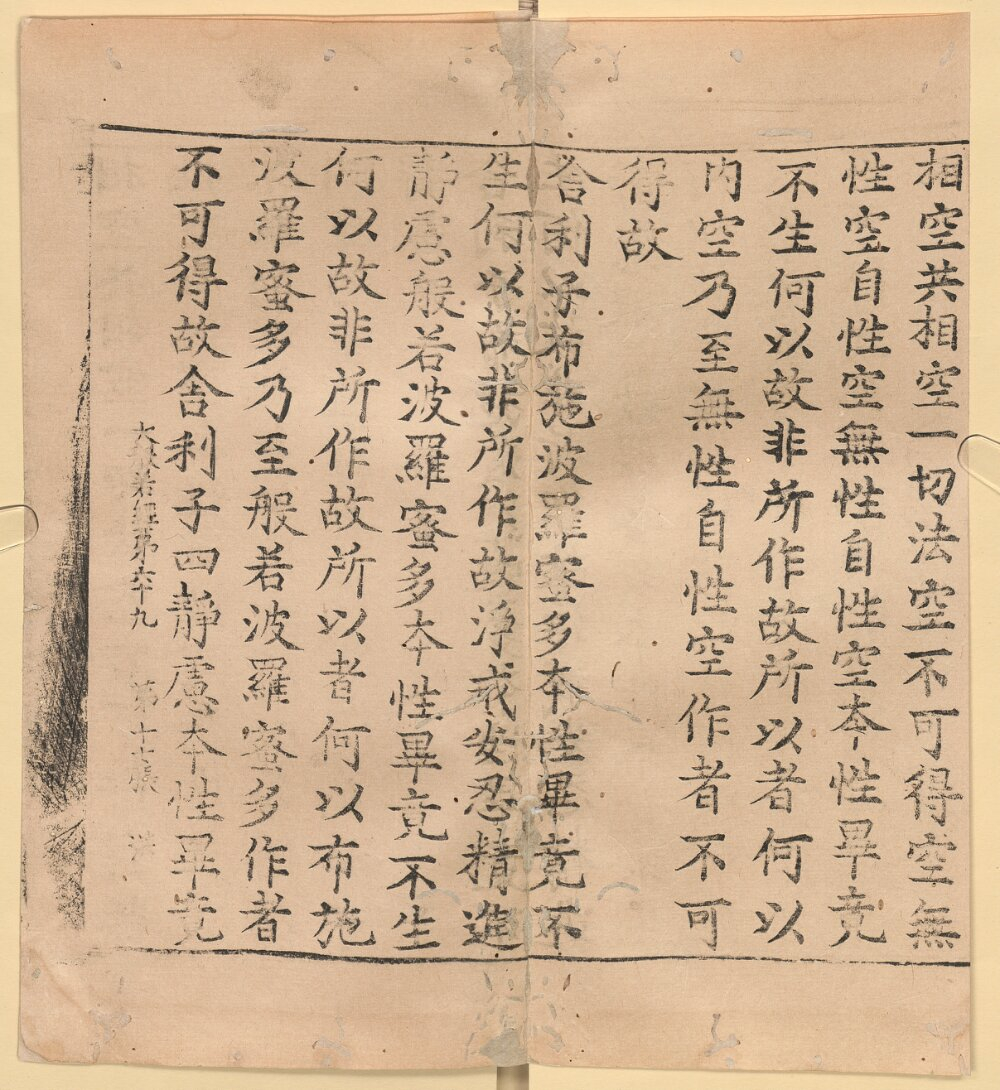 相空共相空一切法空不可得空無
性空自性空無性自性空本性畢竟
不生何以故非所作故所以者何以
内空乃至無性自性空作者不可
得故
舍利子布施波羅蜜多本性畢竟不
生何以故非所作故淨戒安忍精進
靜慮般若波羅蜜多本性畢竟不生
何以故非所作故所以者何以布施
波羅蜜多乃至般若波羅蜜多作者
不可得故舍利子四靜慮本性畢竟
大般若經第六十九 第十七張